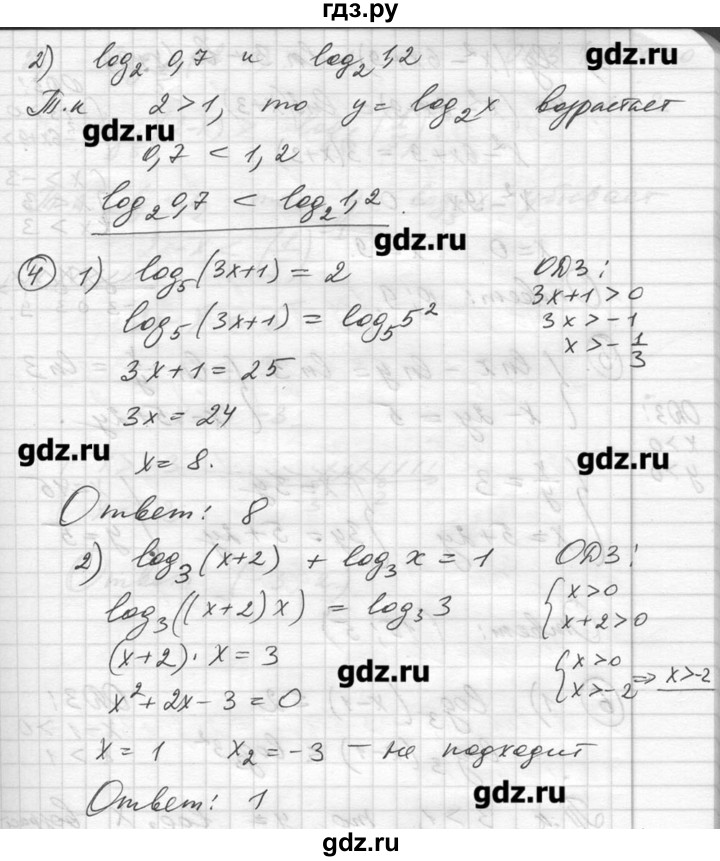 гдз.ру
2) log₂ 0,7 и log₂ 1,2
gdz.ru
Т.к 2 > 1, то y = log₂x возрастает
gdz.ru
0,7 < 1,2
log₂0,7 < log₂1,2.
gdz.ru
④ 1) log₅(3x+1) = 2
ОДЗ:
log₅(3x+1) = log₅5²
3x+1 > 0
3x > -1
x > -1/3
3x+1 = 25
3x = 24
gdz.ru
x = 8.
gdz.ru
Ответ: 8
2) log₃(x+2) + log₃x = 1
ОДЗ:
log₃((x+2)x) = log₃3
{ x > 0
x+2 > 0
(x+2)·x = 3
gdz.ru
{ x > 0
x > -2 => x > -2
x² + 2x - 3 = 0
x = 1 x₂ = -3 — не подходит
gdz.ru
Ответ: 1
gdz.ru